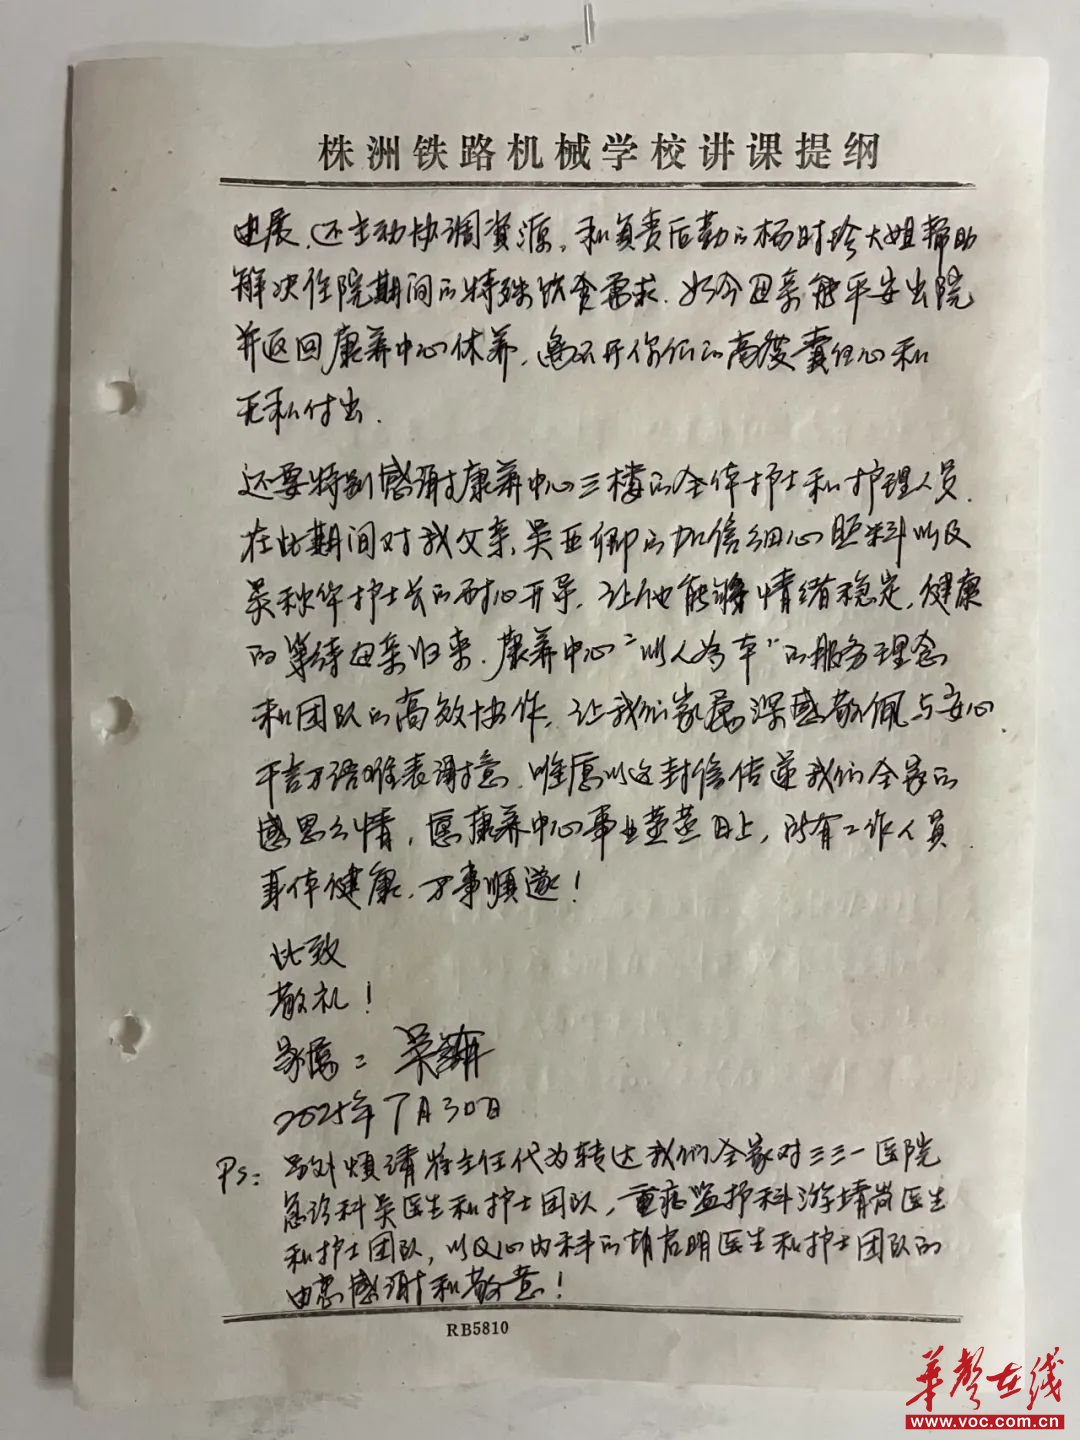 株洲铁路机械学校讲课提纲
进展，还主动协调资源，和负责后勤的杨时珍大姐帮助
解决住院期间的特殊饮食需求．如今母亲能平安出院
并返回康养中心休养，离不开你们的高度责任心和
无私付出．
还要特别感谢康养中心三楼的全体护士和护理人员．
在此期间对我父亲吴亚卿的加倍细心照料以及
吴秋华护士长的耐心开导，让他能够情绪稳定，健康
的等待母亲归来．康养中心"以人为本"的服务理念
和团队的高效协作，让我们家属深感敬佩与安心
千言万语难表谢意．唯愿以这封信传递我们全家的
感恩之情，愿康养中心事业蒸蒸日上，所有工作人员
身体健康，万事顺遂！
此致
敬礼！
家属：吴
2025年7月30日
Ps：另外烦请 主任代为转达我们全家对三三一医院
急诊科吴医生和护士团队，重症监护科游靖岚医生
和护士团队，以及心内科的胡启明医生和护士团队的
由衷感谢和敬意！
RB5810
华声在线
www.voc.com.cn